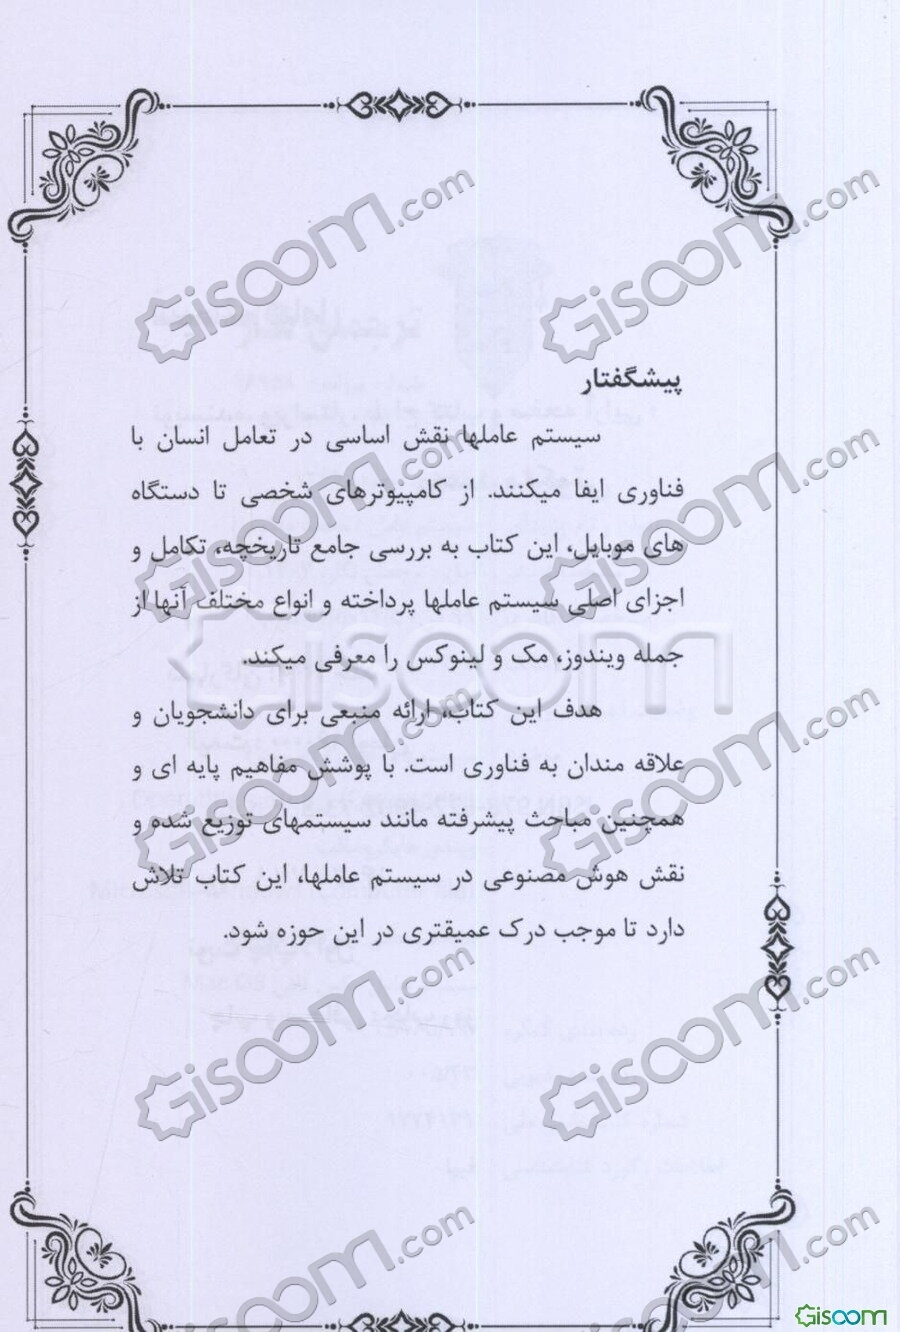 پیشگفتار
سیستم عاملها نقش اساسی در تعامل انسان با
فناوری ایفا میکنند. از کامپیوترهای شخصی تا دستگاه
های موبایل، این کتاب به بررسی جامع تاریخچه، تکامل و
اجزای اصلی سیستم عاملها پرداخته و انواع مختلف آنها از
جمله ویندوز، مک و لینوکس را معرفی میکند.
هدف این کتاب، ارائه منبعی برای دانشجویان و
علاقه مندان به فناوری است. با پوشش مفاهیم پایه ای و
همچنین مباحث پیشرفته مانند سیستمهای توزیع شده و
نقش هوش مصنوعی در سیستم عاملها، این کتاب تلاش
دارد تا موجب درک عمیقتری در این حوزه شود.
Giscoom.com
Giscoom.com
Giscoom.com
Giscoom.com
Giscoom
Giscoom.com
Giscoom.com
Giscoom.com
Giscoom.com
Giscoom.com
Giscoom.com
Giscoom